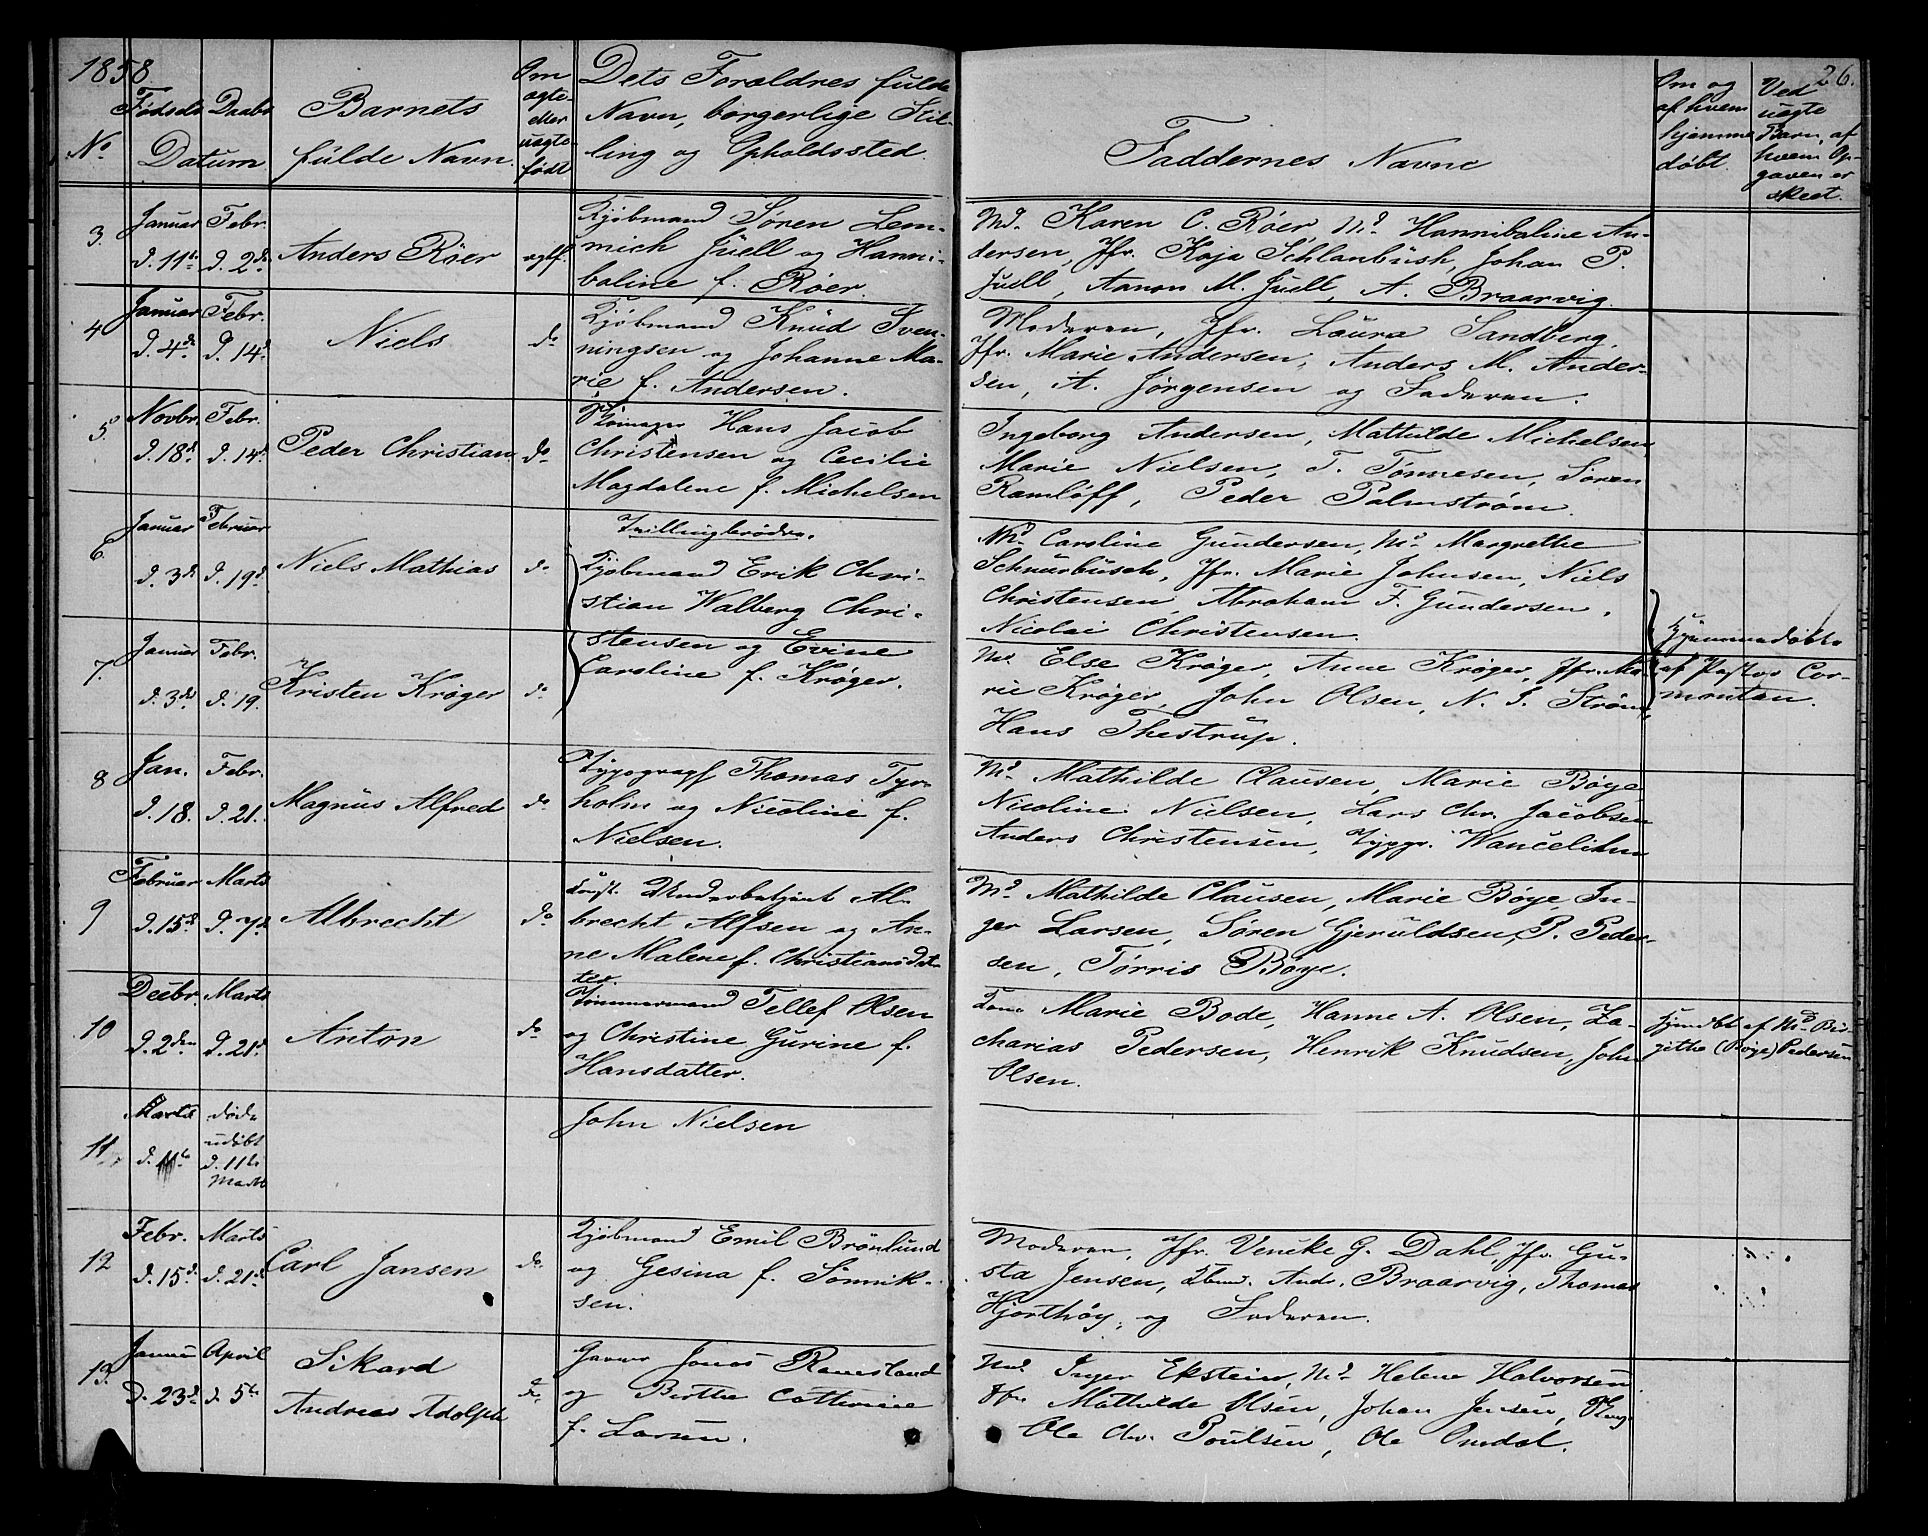 1858.
26.
No
Fødsels Daabs
Datum
Barnets
fulde Navn
Om
ægte
eller
uægte
født
Dets Forældres fulde
Navn, borgerlige Stil-
ling og Opholdssted.
Faddernes Navne
Om og
af hvem
hjemme
døbt.
Ved
uægte
Barn, af
hvem Op-
gaven er
skeet.
3.
Januar Febr.
d. 11te d. 2de
Anders Röer
ægtf.
Kjøbmand Søren Lem-
mich Juell og Hanni-
baline f. Röer.
Md. Karen C. Röer Md Hannibaline An-
dersen, Jfr. Kaja Schlanbusch, Johan P.
Juell, Aanon M. Juell, A. Braarvig.
4
Januar Febr.
d. 4de d. 14d
Niels
do
Kjøbmand Knud Sven-
ningsen og Johanne Ma-
rie f. Andersen.
Moderen, Jfr. Laura Sandberg,
Jfr. Marie Andersen, Anders M. Ander-
sen, A. Jörgensen og Faderen.
5
Novbr. Febr.
d. 18d d. 14d.
Peder Christian
do
Hans Jacob
Christensen og Cecilie
Magdalene f. Michelsen
Ingeborg Andersen, Mathilde Michelsen,
Marie Nielsen, T. Tönnesen, Sören
Ramlöff, Peder Palmström.
6.
Januar Februar
d. 3de d. 19d.
Niels Mathias
do
Tvillingbrødre.
Kjøbmand Erik Chri-
stian Walberg Chri-
stensen og Evine
Caroline f. Kröger.
Md. Caroline Gundersen, Md. Margrethe
Schnürbusch, Jfr. Marie Johnsen, Niels
Christensen, Abraham F. Gundersen,
Nicolai Christensen.
Hjemmedøbte
af Pastor Cor-
montan.
7.
Januar Febr.
d. 3de d. 19.
Kristen Kröger
do
Md. Else Kröger, Anne Kröger, Jfr. Ma-
rie Kröger, John Olsen, N. S. Ström,
Hans Thestrup.
8
Jan. Febr.
d. 18. d. 21.
Magnus Alfred
do
Typograf Thomas Tyr-
holm og Nicoline f.
Nielsen.
Md. Mathilde Clausen, Marie Böye
Nicoline Nielsen, Lars Chr. Jacobsen
Anders Christensen, Typgr.
9
Februar Marts
d. 15d d. 7d
Albrecht
do
Const. Underbetjent Al-
brecht Alfsen og An-
ne Malene f. Christiansdat-
ter.
Md. Mathilde Clausen, Marie Böye, In-
ger Larsen, Sören Gjeruldsen, P. Peder-
sen, Törris Böye.
10
Decbr. Marts
d. 2den d. 21d.
Anton
do
Tømmermand Tellef Olsen
og Christine Gurine f.
Hansdatter.
Kone Marie Bode, Hanne A. Olsen, Za-
charias Pedersen, Henrik Knudsen, John
Olsen.
hjmdbt af Md. Bir-
githe (Böye) Pedersen
11
Marts død
udøbt
d. 11te d. 11te
Marts
John Nielsen
12
Febr. Marts
d. 15d. d. 21de
Carl Jansen
do.
Kjøbmand Emil Brönlund
og Gesina f. Sönnik-
sen.
Moderen, Jfr. Vencke G. Dahl, Jfr. Gu-
sta Jensen, Kbmd. And. Braarvig, Thomas
Hjorthöy, og Faderen.
13.
Januar April
d. 23d d. 5te
Sikard
Andreas Adolph
do
Garver Jonas Ramsland
og Berthe Cathrine
f. Larsen.
Md. Inger Ekstein, Md. Helene Halvorsen
Jfr. Mathilde Olsen, Johan Jensen,
Ole Chr. Poulsen, Ole Omdal.